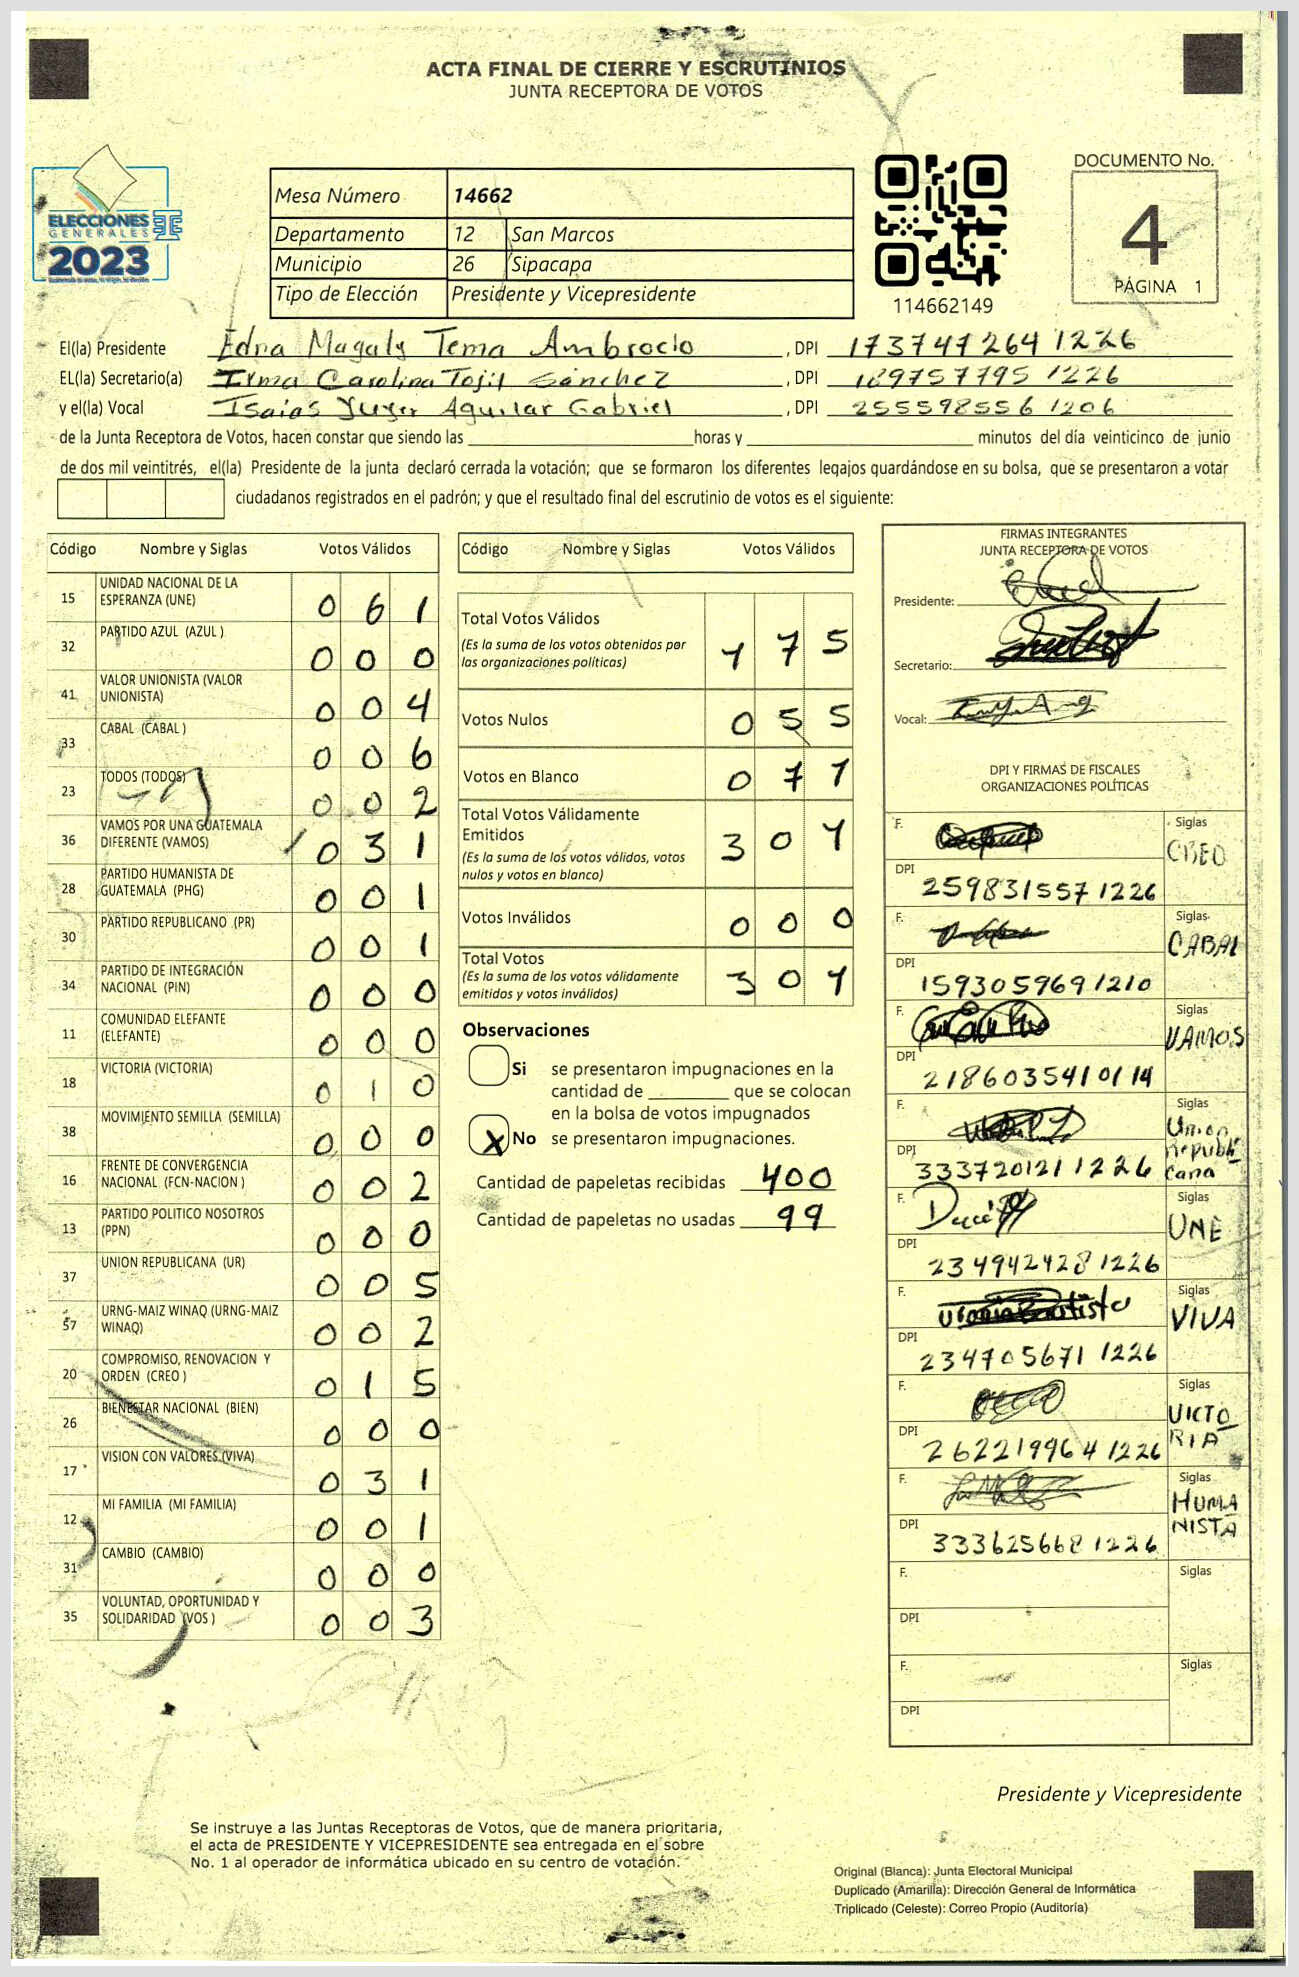 ACTA FINAL DE CIERRE Y ESCRUTINIOS
JUNTA RECEPTORA DE VOTOS
ELECCIONES
GENERALES
2023
Mesa Número 14662
Departamento 12 San Marcos
Municipio 26 Sipacapa
Tipo de Elección Presidente y Vicepresidente
114662149
DOCUMENTO No.
4
PÁGINA 1
El(la) Presidente Edna Magaly Tema Ambrocio, DPI 173747264 1226
EL(la) Secretario(a) Irma Carolina Tojil Sánchez, DPI 189757795 1226
y el(la) Vocal Isaias Aguilar Gabriel, DPI 255598556 1206
de la Junta Receptora de Votos, hacen constar que siendo las horas y minutos del día veinticinco de junio
de dos mil veintitrés, el(la) Presidente de la junta declaró cerrada la votación; que se formaron los diferentes legajos guardándose en su bolsa, que se presentaron a votar
ciudadanos registrados en el padrón; y que el resultado final del escrutinio de votos es el siguiente:
Código Nombre y Siglas Votos Válidos
15 UNIDAD NACIONAL DE LA ESPERANZA (UNE) 061
32 PARTIDO AZUL (AZUL ) 000
41 VALOR UNIONISTA (VALOR UNIONISTA) 004
33 CABAL (CABAL ) 006
23 TODOS (TODOS) 002
36 VAMOS POR UNA GUATEMALA DIFERENTE (VAMOS) 031
28 PARTIDO HUMANISTA DE GUATEMALA (PHG) 001
30 PARTIDO REPUBLICANO (PR) 001
34 PARTIDO DE INTEGRACIÓN NACIONAL (PIN) 000
11 COMUNIDAD ELEFANTE (ELEFANTE) 000
18 VICTORIA (VICTORIA) 010
38 MOVIMIENTO SEMILLA (SEMILLA) 000
16 FRENTE DE CONVERGENCIA NACIONAL (FCN-NACION ) 002
13 PARTIDO POLITICO NOSOTROS (PPN) 000
37 UNION REPUBLICANA (UR) 005
57 URNG-MAIZ WINAQ (URNG-MAIZ WINAQ) 002
20 COMPROMISO, RENOVACION Y ORDEN (CREO ) 015
26 BIENESTAR NACIONAL (BIEN) 000
17 VISION CON VALORES (VIVA) 031
12 MI FAMILIA (MI FAMILIA) 001
31 CAMBIO (CAMBIO) 000
35 VOLUNTAD, OPORTUNIDAD Y SOLIDARIDAD (VOS ) 003
Código Nombre y Siglas Votos Válidos
Total Votos Válidos 175
(Es la suma de los votos obtenidos por
las organizaciones políticas)
Votos Nulos 055
Votos en Blanco 071
Total Votos Válidamente
Emitidos 301
(Es la suma de los votos válidos, votos
nulos y votos en blanco)
Votos Inválidos 000
Total Votos 301
(Es la suma de los votos válidamente
emitidos y votos inválidos)
Observaciones
Si se presentaron impugnaciones en la
cantidad de que se colocan
en la bolsa de votos impugnados
X No se presentaron impugnaciones.
Cantidad de papeletas recibidas 400
Cantidad de papeletas no usadas 99
FIRMAS INTEGRANTES
JUNTA RECEPTORA DE VOTOS
Presidente:
Secretario:
Vocal:
DPI Y FIRMAS DE FISCALES
ORGANIZACIONES POLÍTICAS
F. Siglas
DPI 259831557 1226
F. Siglas CABAL
DPI 159305969 1210
F. Siglas VAMOS
DPI 218603541 0114
F. Siglas Union Republicana
DPI 333720121 1226
F. Siglas UNE
DPI 234942428 1226
F. Siglas VIVA
DPI 234705671 1226
F. Siglas VICTORIA
DPI 262219964 1226
F. Siglas HUMANISTA
DPI 333625668 1226
F. Siglas
DPI
F. Siglas
DPI
Presidente y Vicepresidente
Se instruye a las Juntas Receptoras de Votos, que de manera prioritaria,
el acta de PRESIDENTE Y VICEPRESIDENTE sea entregada en el sobre
No. 1 al operador de informática ubicado en su centro de votación.
Original (Blanca): Junta Electoral Municipal
Duplicado (Amarilla): Dirección General de Informática
Triplicado (Celeste): Correo Propio (Auditoría)